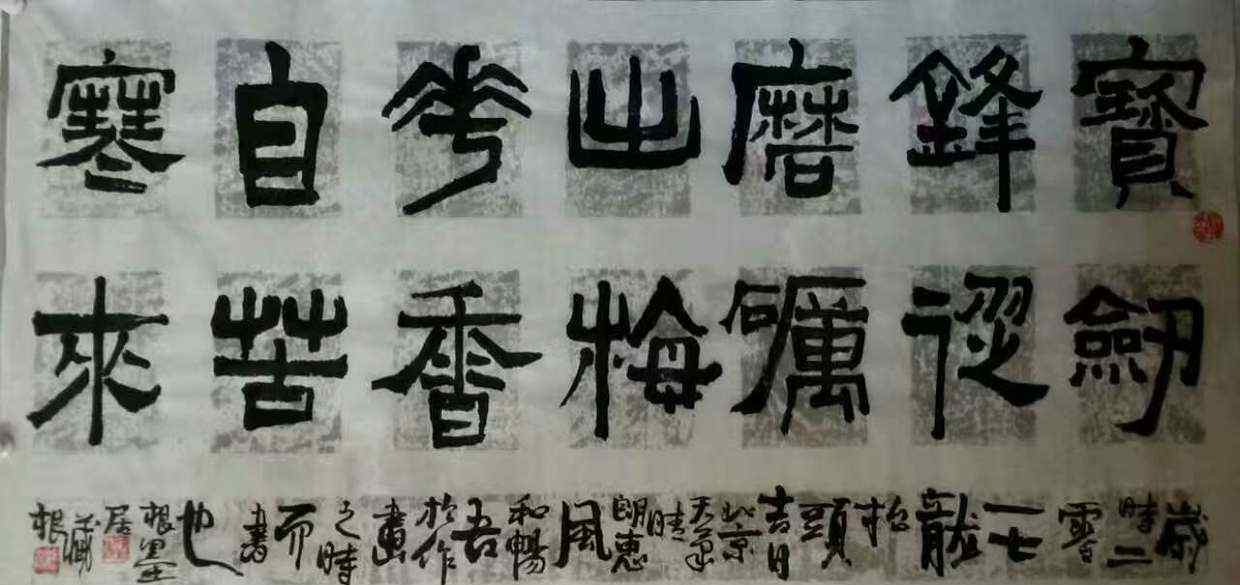 寶劔
鋒從
磨礪
出梅
花香
自苦
寒來
歲時二零一七龍抬頭吉月北京天藍晴朗惠風和暢吾於作畫之時而書也根墨居藏根